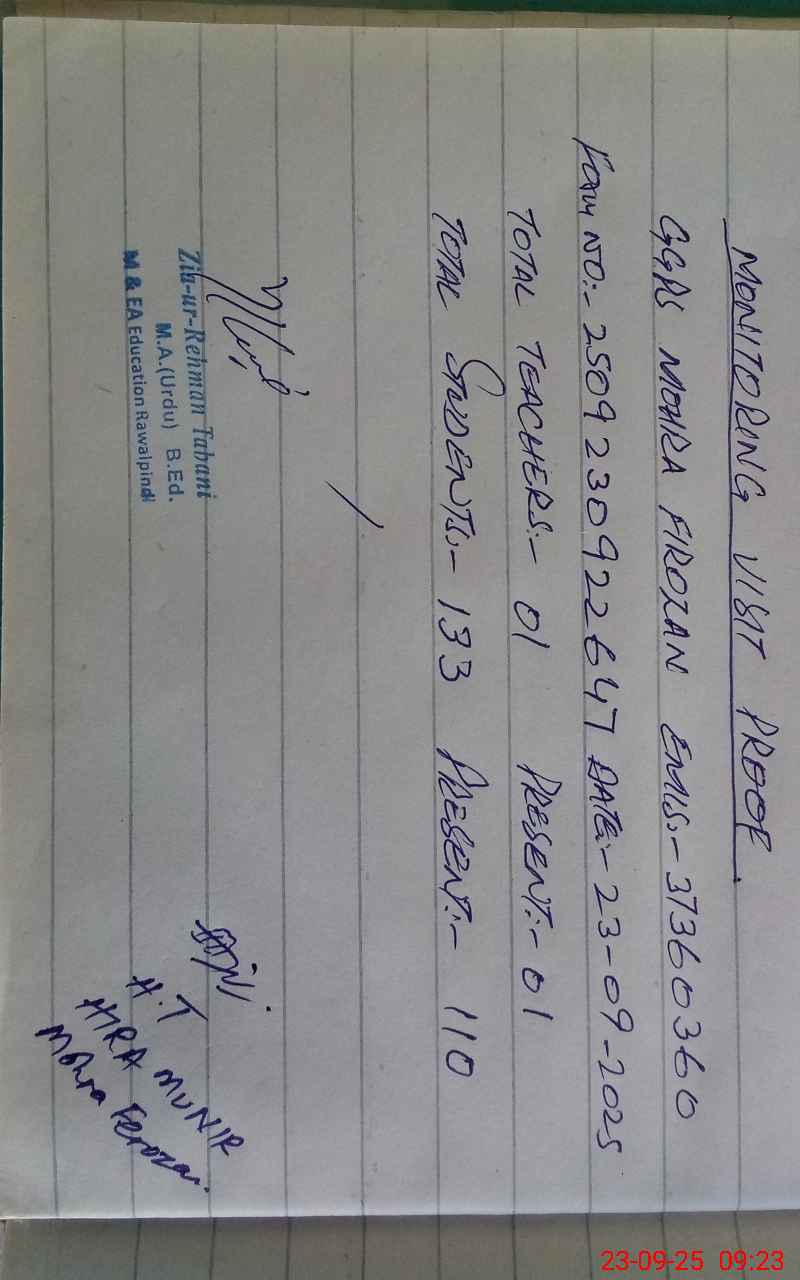 MONITORING VISIT PROOF.
GGPS MOHRA FIROZAN EMIS:- 37360360
Form NO:- 2509230922647 DATE:- 23-09-2025
TOTAL TEACHERS:- 01 PRESENT:- 01
TOTAL STUDENTS:- 133 PRESENT:- 110
Zia-ur-Rehman Tabani
M.A.(Urdu) B.Ed.
M & EA Education Rawalpindi
H.T
HIRA MUNIR
Mohra Ferozan.
23-09-25 09:23